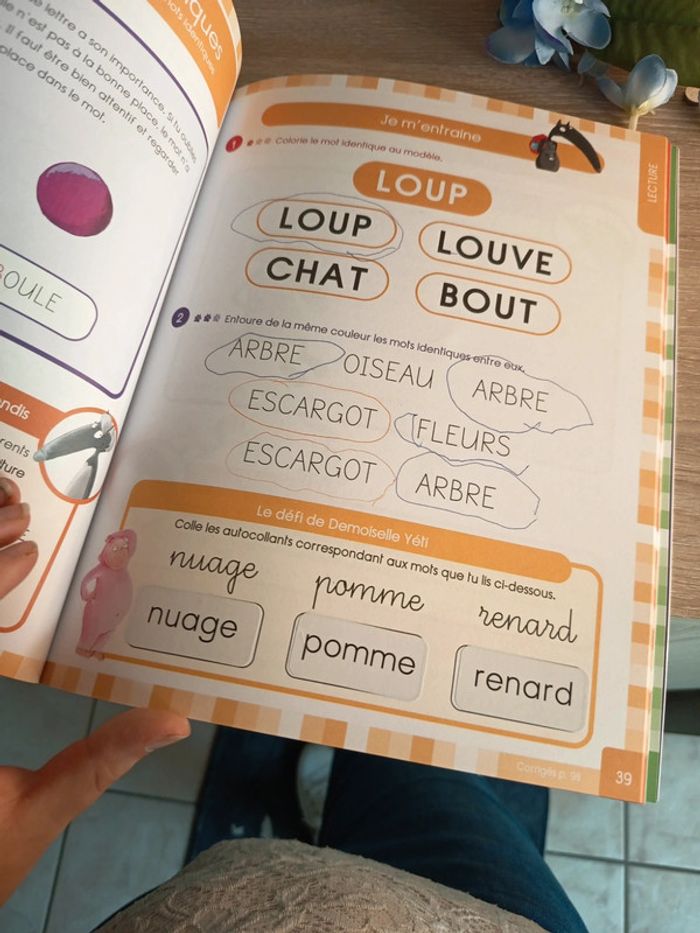 iques
mots identiques
lettre a son importance, si tu oublies
n'est pas à la bonne place, le mot n'a
Il faut être bien attentif et regarder
place dans le mot.
BOULE
Je m'entraine
LECTURE
1 Colorie le mot identique au modèle.
LOUP
LOUP LOUVE
CHAT BOUT
2 Entoure de la même couleur les mots identiques entre eux.
ARBRE OISEAU ARBRE
ESCARGOT FLEURS
ESCARGOT ARBRE
Le défi de Demoiselle Yéti
Colle les autocollants correspondant aux mots que tu lis ci-dessous.
nuage pomme renard
nuage pomme renard
Corrigés p. 98
39